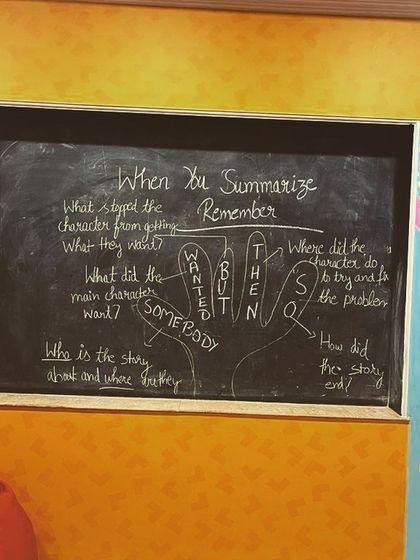 When You Summarize
Remember
What stopped the
character from getting
What they want?
What did the
main character
want?
Who is the story
about and where are they
SOMEBODY
WANTED
BUT
THEN
SO
Where did the
character do
to try and fix
the problem
How did
the story
end?